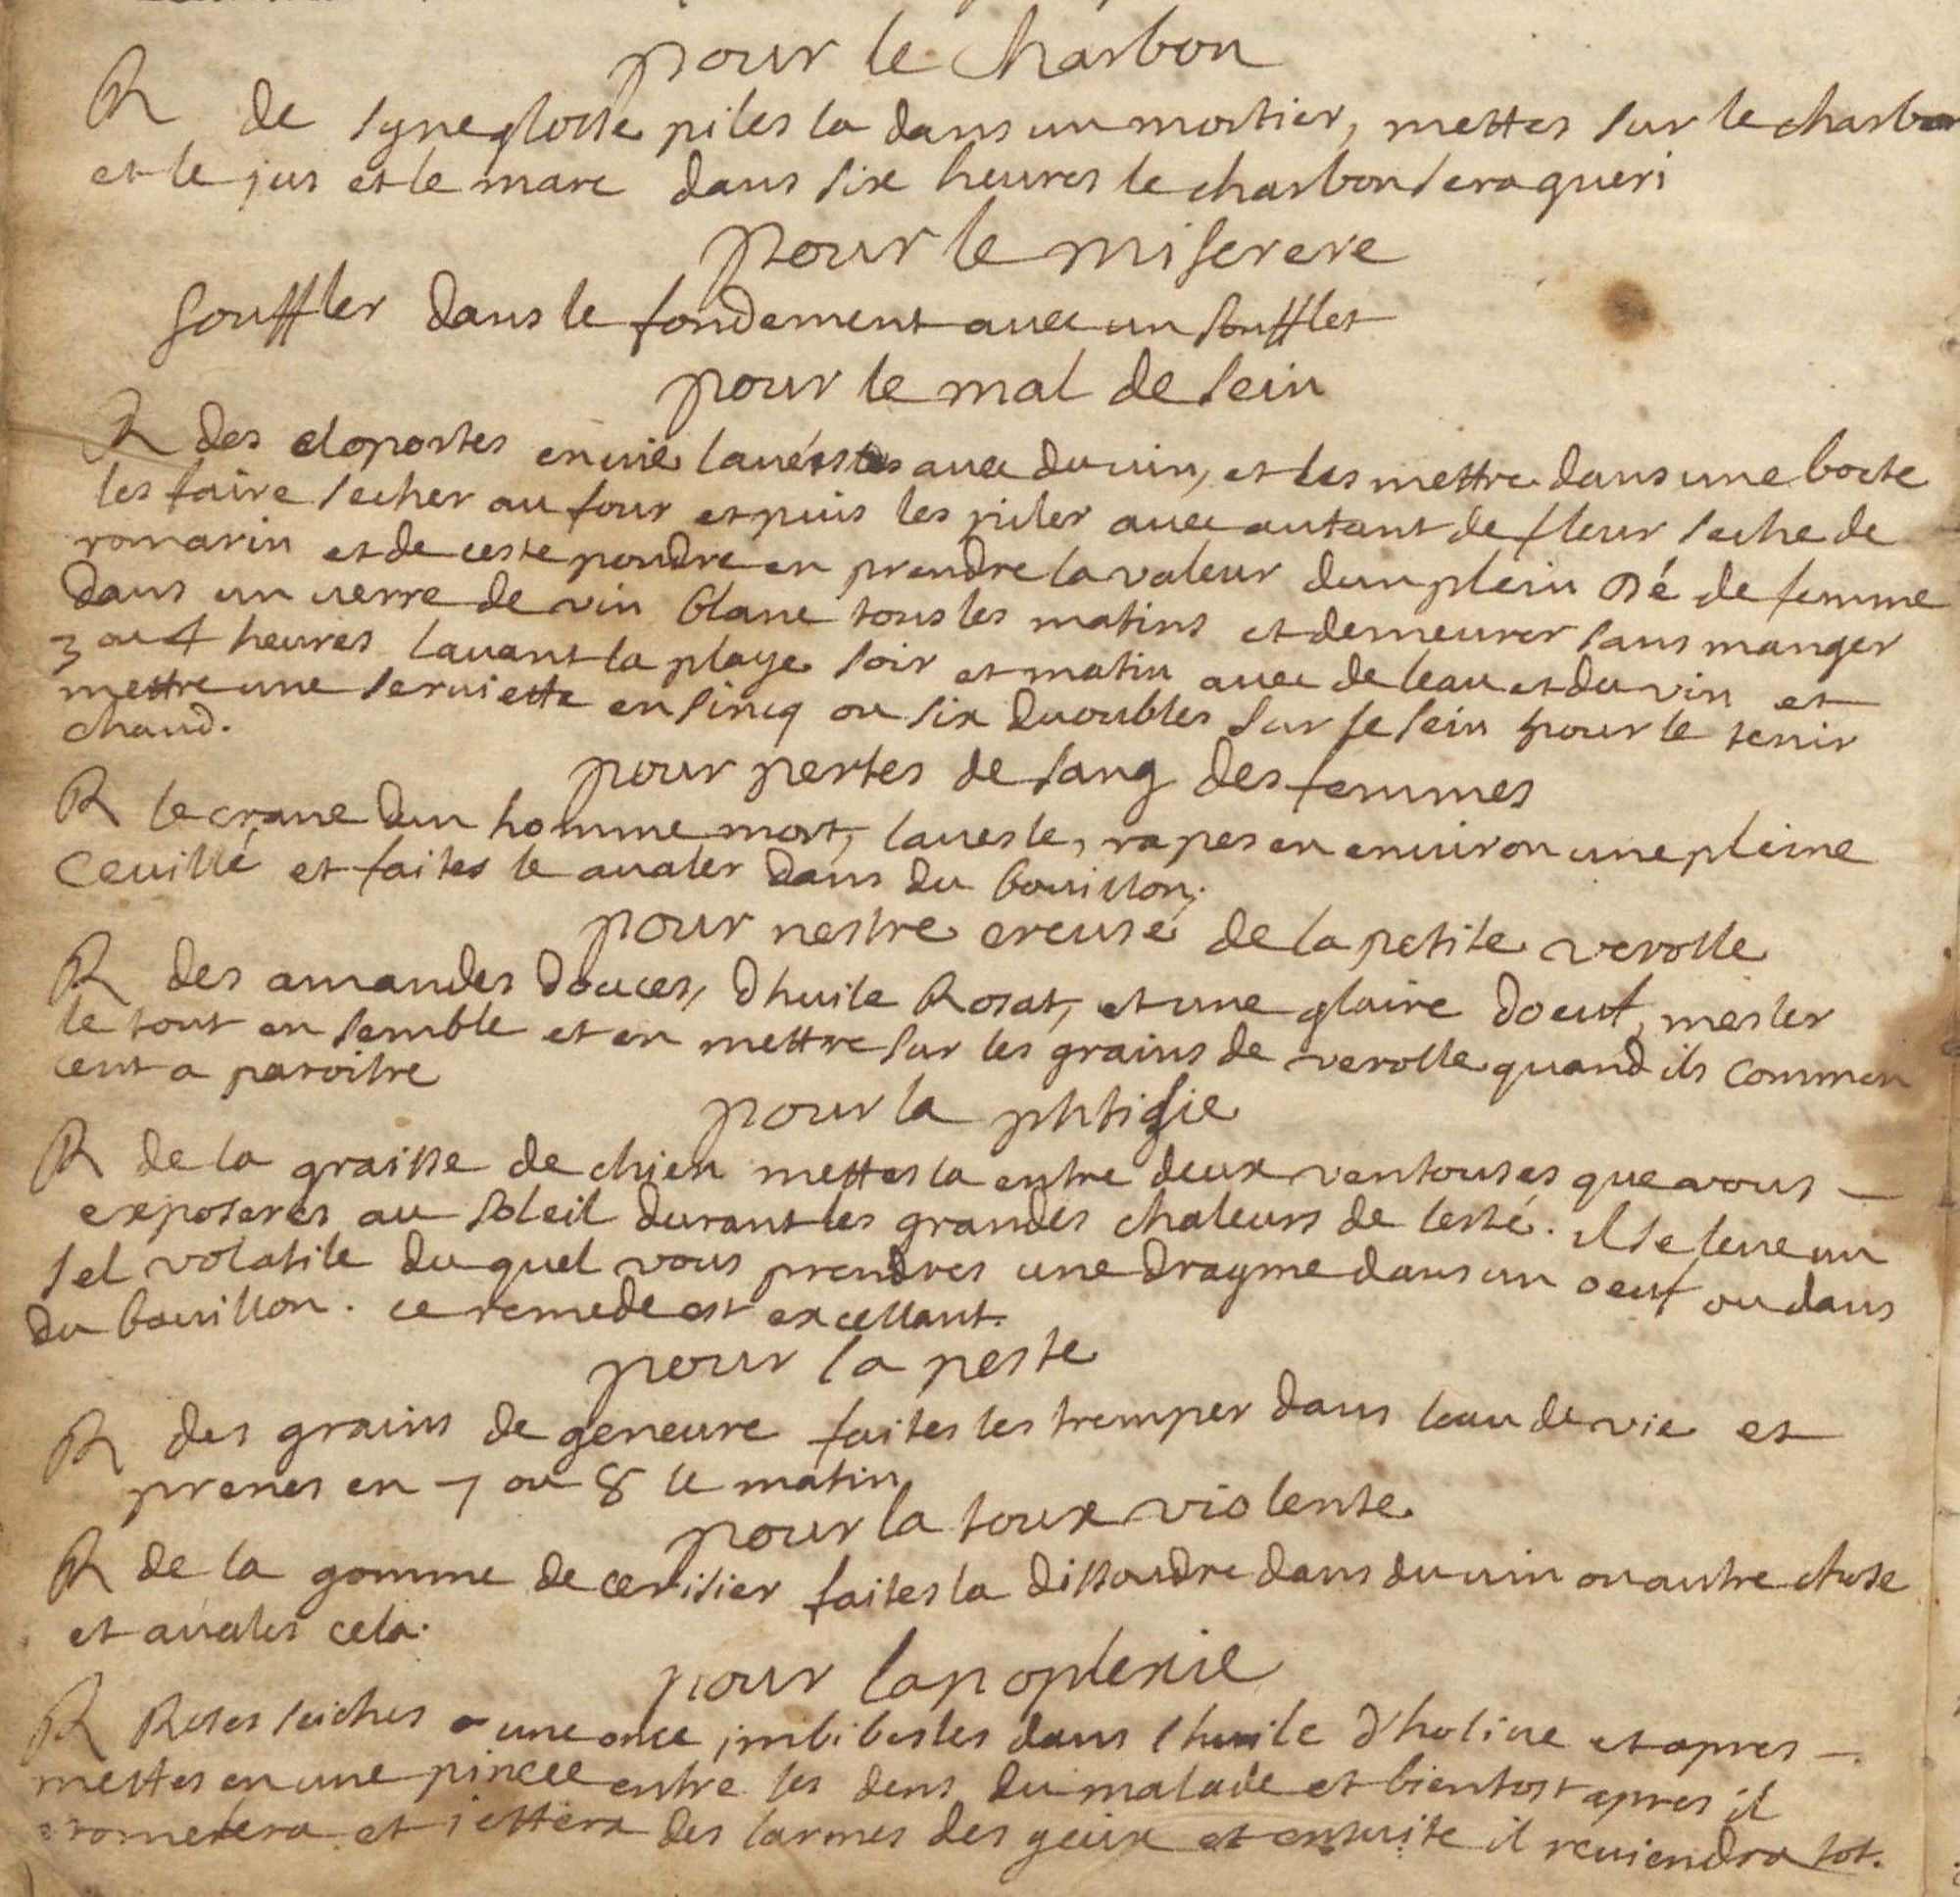 pour le charbon
R de syneglosse piles la dans un mortier, mettes sur le charbon
et le jus et le marc dans six heures le charbon sera gueri
pour le miserere
souffler dans le fondement avec un soufflet
pour le mal de sein
R des cloportes en vie lavés avec du vin, et les mettre dans une boete
les faire secher au four et puis les piler avec autant de fleur seche de
romarin et de ceste poudre en prendre la valeur dun plein dé de femme
dans un verre de vin blanc tous les matins et demeurer sans manger
3 ou 4 heures lavant la playe soir et matin avec de leau et du vin et
mettre une serviette en sincq ou six duoubles sur le sein pour le tenir
chaud.
pour pertes de sang des femmes
R le crane dun homme mort, laves le, rapes en environ une pleine
ceuillé et faites le avaler dans du bouillon;
pour nestre creusé de la petite verolle
R des amandes douces, dhuile Rosat, et une glaire doeuf, mesler
le tout en semble et en mettre sur les grains de verolle quand ils commen
cent a paroitre
pour la phtisie
R de la graisse de chien mettes la entre deux ventouses que vous —
exposeres au soleil durant les grandes chaleurs de lesté. il se leve un
sel volatile du quel vous prendres une dragme dans un oeuf ou dans
du bouillon. ce remede est excellant.
pour la peste
R des grains de geneure faites les tremper dans leau de vie et
prenes en 7 ou 8 le matin
pour la toux violente
R de la gomme de cerisier faites la dissoudre dans du vin ou autre chose
et avales cela.
pour lapoplexie
R Roses seiches une once imbibes les dans lhuile dholive et apres —
mettes en une pincee entre les dens du malade et bientost apres il
vometera et jettera des larmes des yeux et ensuite il reviendra tot.